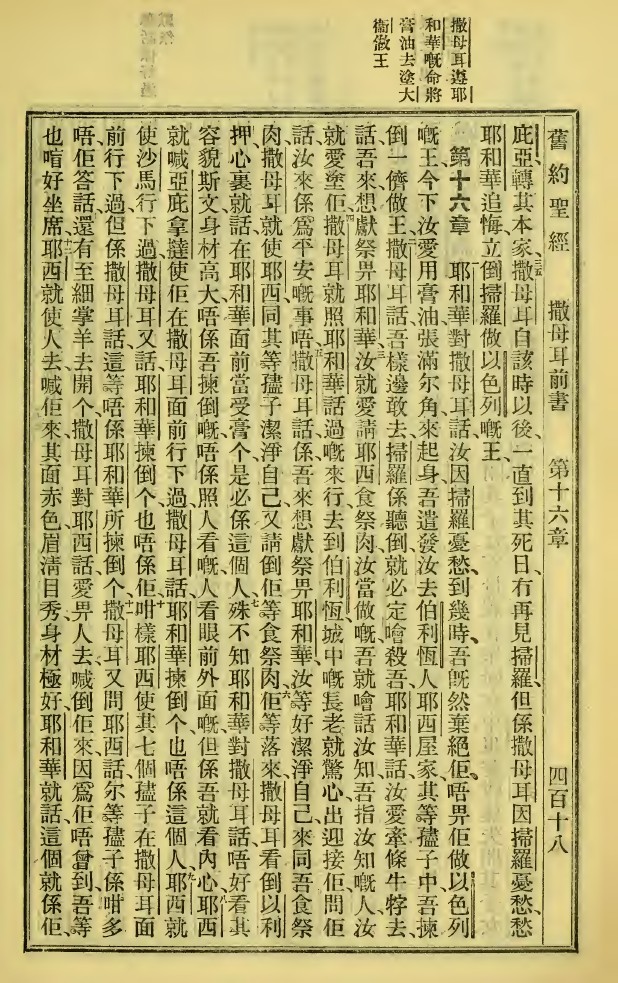 撒母耳遵耶
和華嘅命將
膏油去塗大
衞做王
舊約聖經 撒母耳前書 第十六章 四百十八
庇亞轉其本家、撒母耳自該時以後、一直到其死日、冇再見掃羅、但係撒母耳因掃羅憂愁愁、
三五
耶和華追悔立倒掃羅做以色列嘅王、
第十六章 耶和華對撒母耳話、汝因掃羅憂愁、到幾時、吾旣然棄絕佢、唔畀佢做以色列
嘅王、今下汝愛用膏油張滿尔角來起身、吾遣發汝去伯利恆人耶西屋家、其等孻子中、吾揀
倒一儕做王、二撒母耳話、吾樣邊敢去、掃羅係聽倒、就必定噲殺吾、耶和華話、汝愛牽條牛牸去、
話吾來想獻祭畀耶和華、三汝就愛請耶西食祭肉、汝當做嘅、吾就噲話汝知、吾指汝知嘅人、汝
就愛塗佢、四撒母耳就照耶和華話過嘅來行、去到伯利恆、城中嘅長老就驚心出迎接佢、問佢
話、汝來係爲平安嘅事唔、五撒母耳話、係、吾來想獻祭畀耶和華、汝等好潔淨自己、來同吾食祭
肉、撒母耳就使耶西同其等孻子潔淨自己、又請倒佢等食祭肉、六佢等落來、撒母耳看倒以利
押、心裏就話、在耶和華面前當受膏个、是必係這個人、七殊不知耶和華對撒母耳話、唔好看其
容貌斯文、身材高大、唔係吾揀倒嘅、唔係照人看嘅、人看眼前外面嘅、但係吾就看內心、八耶西
就喊亞庇拿撻、使佢在撒母耳面前行下過、撒母耳話、耶和華揀倒个、也唔係這個人、九耶西就
使沙馬行下過、撒母耳又話、耶和華揀倒个、也唔係佢、十咁樣耶西使其七個孻子、在撒母耳面
前行下過、但係撒母耳話、這等唔係耶和華所揀倒个、十一撒母耳又問耶西話、尔等孻子係咁多
唔、佢答話、還有至細掌羊去開个、撒母耳對耶西話、愛畀人去喊倒佢來、因爲佢唔曾到、吾等
也唔好坐席、十二耶西就使人去喊佢來、其面赤色、眉清目秀、身材極好、耶和華就話、這個就係佢、